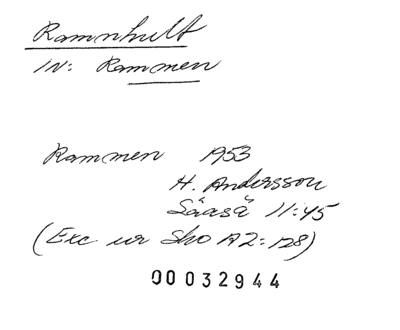 Ramnhult
IN: Rammen
Rammen 1953
H. Andersson
Såaså 11:45
(Exc ur Sko A2:128)
00032944